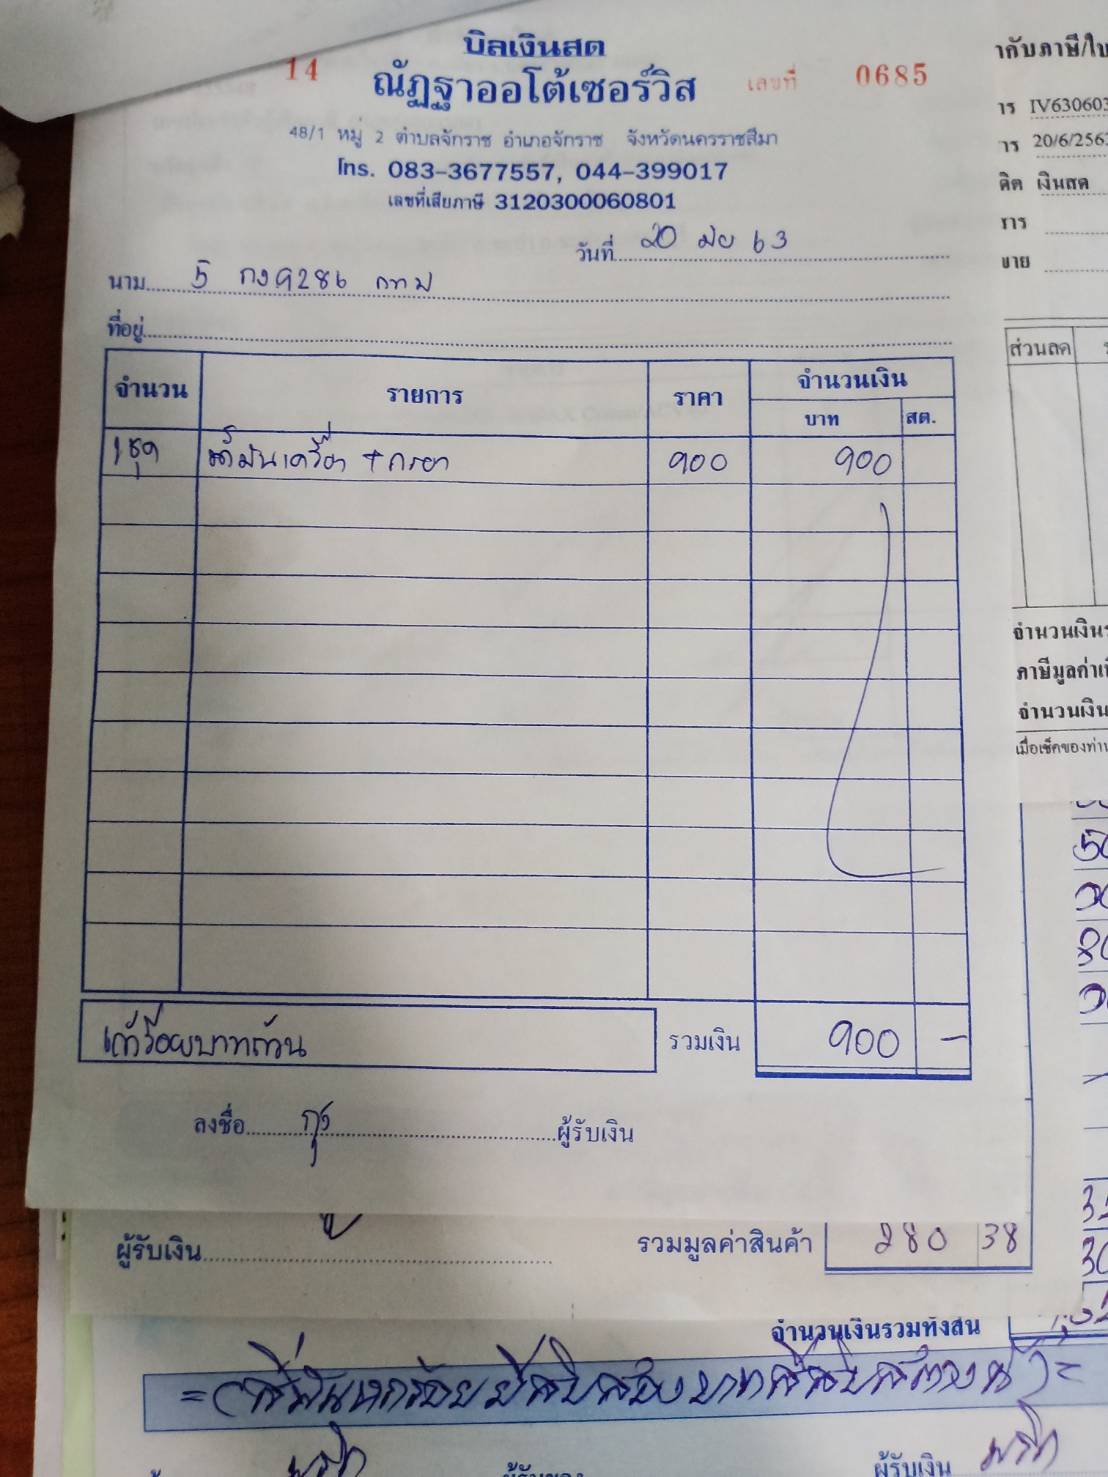 บิลเงินสด
14 ณัฏฐาออโต้เซอร์วิส เลขที่ 0685
48/1 หมู่ 2 ตำบลจักราช อำเภอจักราช จังหวัดนครราชสีมา
โทร. 083-3677557, 044-399017
เลขที่เสียภาษี 3120300060801
วันที่ 20 มิย 63
นาม 5 กง 9286 กทม
ที่อยู่
จำนวน รายการ ราคา จำนวนเงิน
บาท สต.
1 ชุด น้ำมันเครื่อง + กรอง 900 900
เก้าร้อยบาทถ้วน รวมเงิน 900 -
ลงชื่อ ผู้รับเงิน
ผู้รับเงิน รวมมูลค่าสินค้า 280 38
จำนวนเงินรวมทั้งสิ้น
ผู้รับเงิน
ากับภาษี/ใบ
าร IV630603
าร 20/6/2563
ดิต เงินสด
ราร
ขาย
ส่วนลด
จำนวนเงินร
ภาษีมูลค่าเพิ
จำนวนเงิน
เมื่อเช็คของท่าน